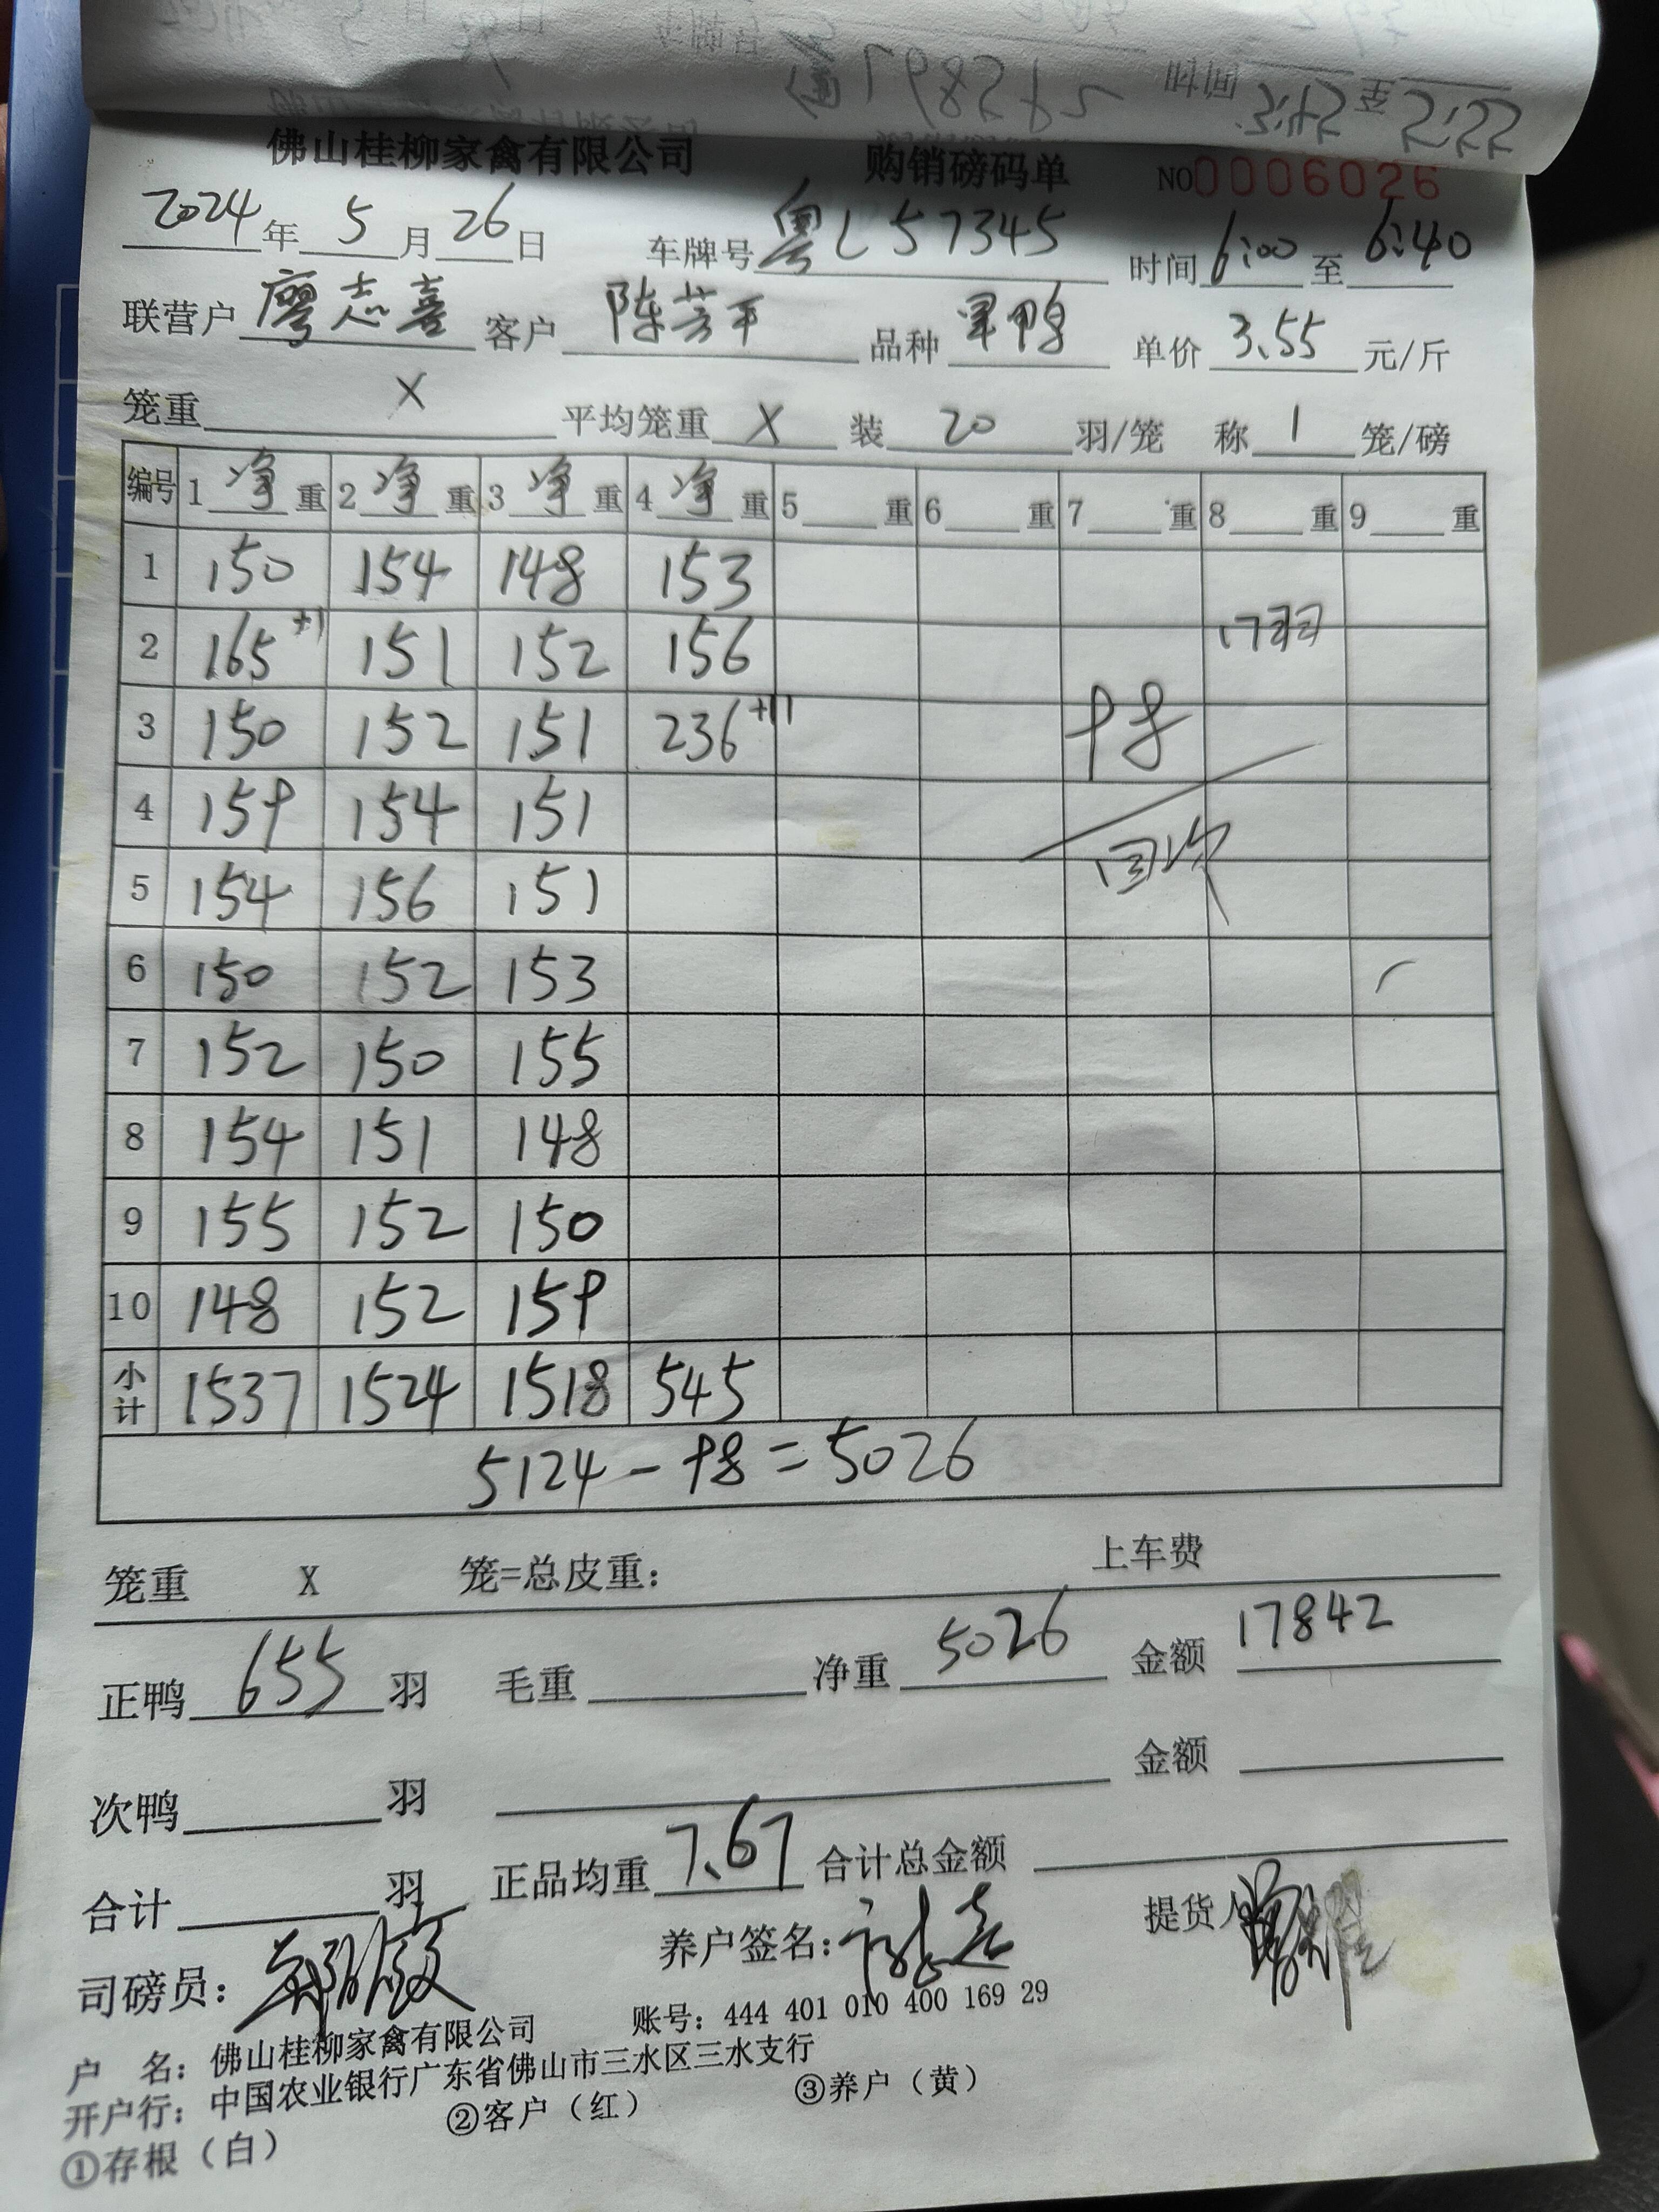 佛山桂柳家禽有限公司 购销磅码单 NO0006026
2024年5月26日 车牌号 粤L57345 时间 6:00 至 6:40
联营户 廖志喜 客户 陈芳平 品种 军鸭 单价 3.55 元/斤
笼重 X 平均笼重 X 装 20 羽/笼 称 1 笼/磅
编号 1 净 重 2 净 重 3 净 重 4 净 重 5 重 6 重 7 重 8 重 9 重
1 150 154 148 153
2 165+1 151 152 156 17羽
3 150 152 151 236+11 98
4 159 154 151
5 154 156 151 回次
6 150 152 153
7 152 150 155
8 154 151 148
9 155 152 150
10 148 152 159
小计 1537 1524 1518 545
5124-98=5026
笼重 X 笼=总皮重： 上车费
正鸭 655 羽 毛重 净重 5026 金额 17842
次鸭 羽 金额
合计 羽 正品均重 7.67 合计总金额
司磅员： 养户签名： 提货人
户 名：佛山桂柳家禽有限公司 账号：444 401 010 400 169 29
开户行：中国农业银行广东省佛山市三水区三水支行
①存根（白） ②客户（红） ③养户（黄）